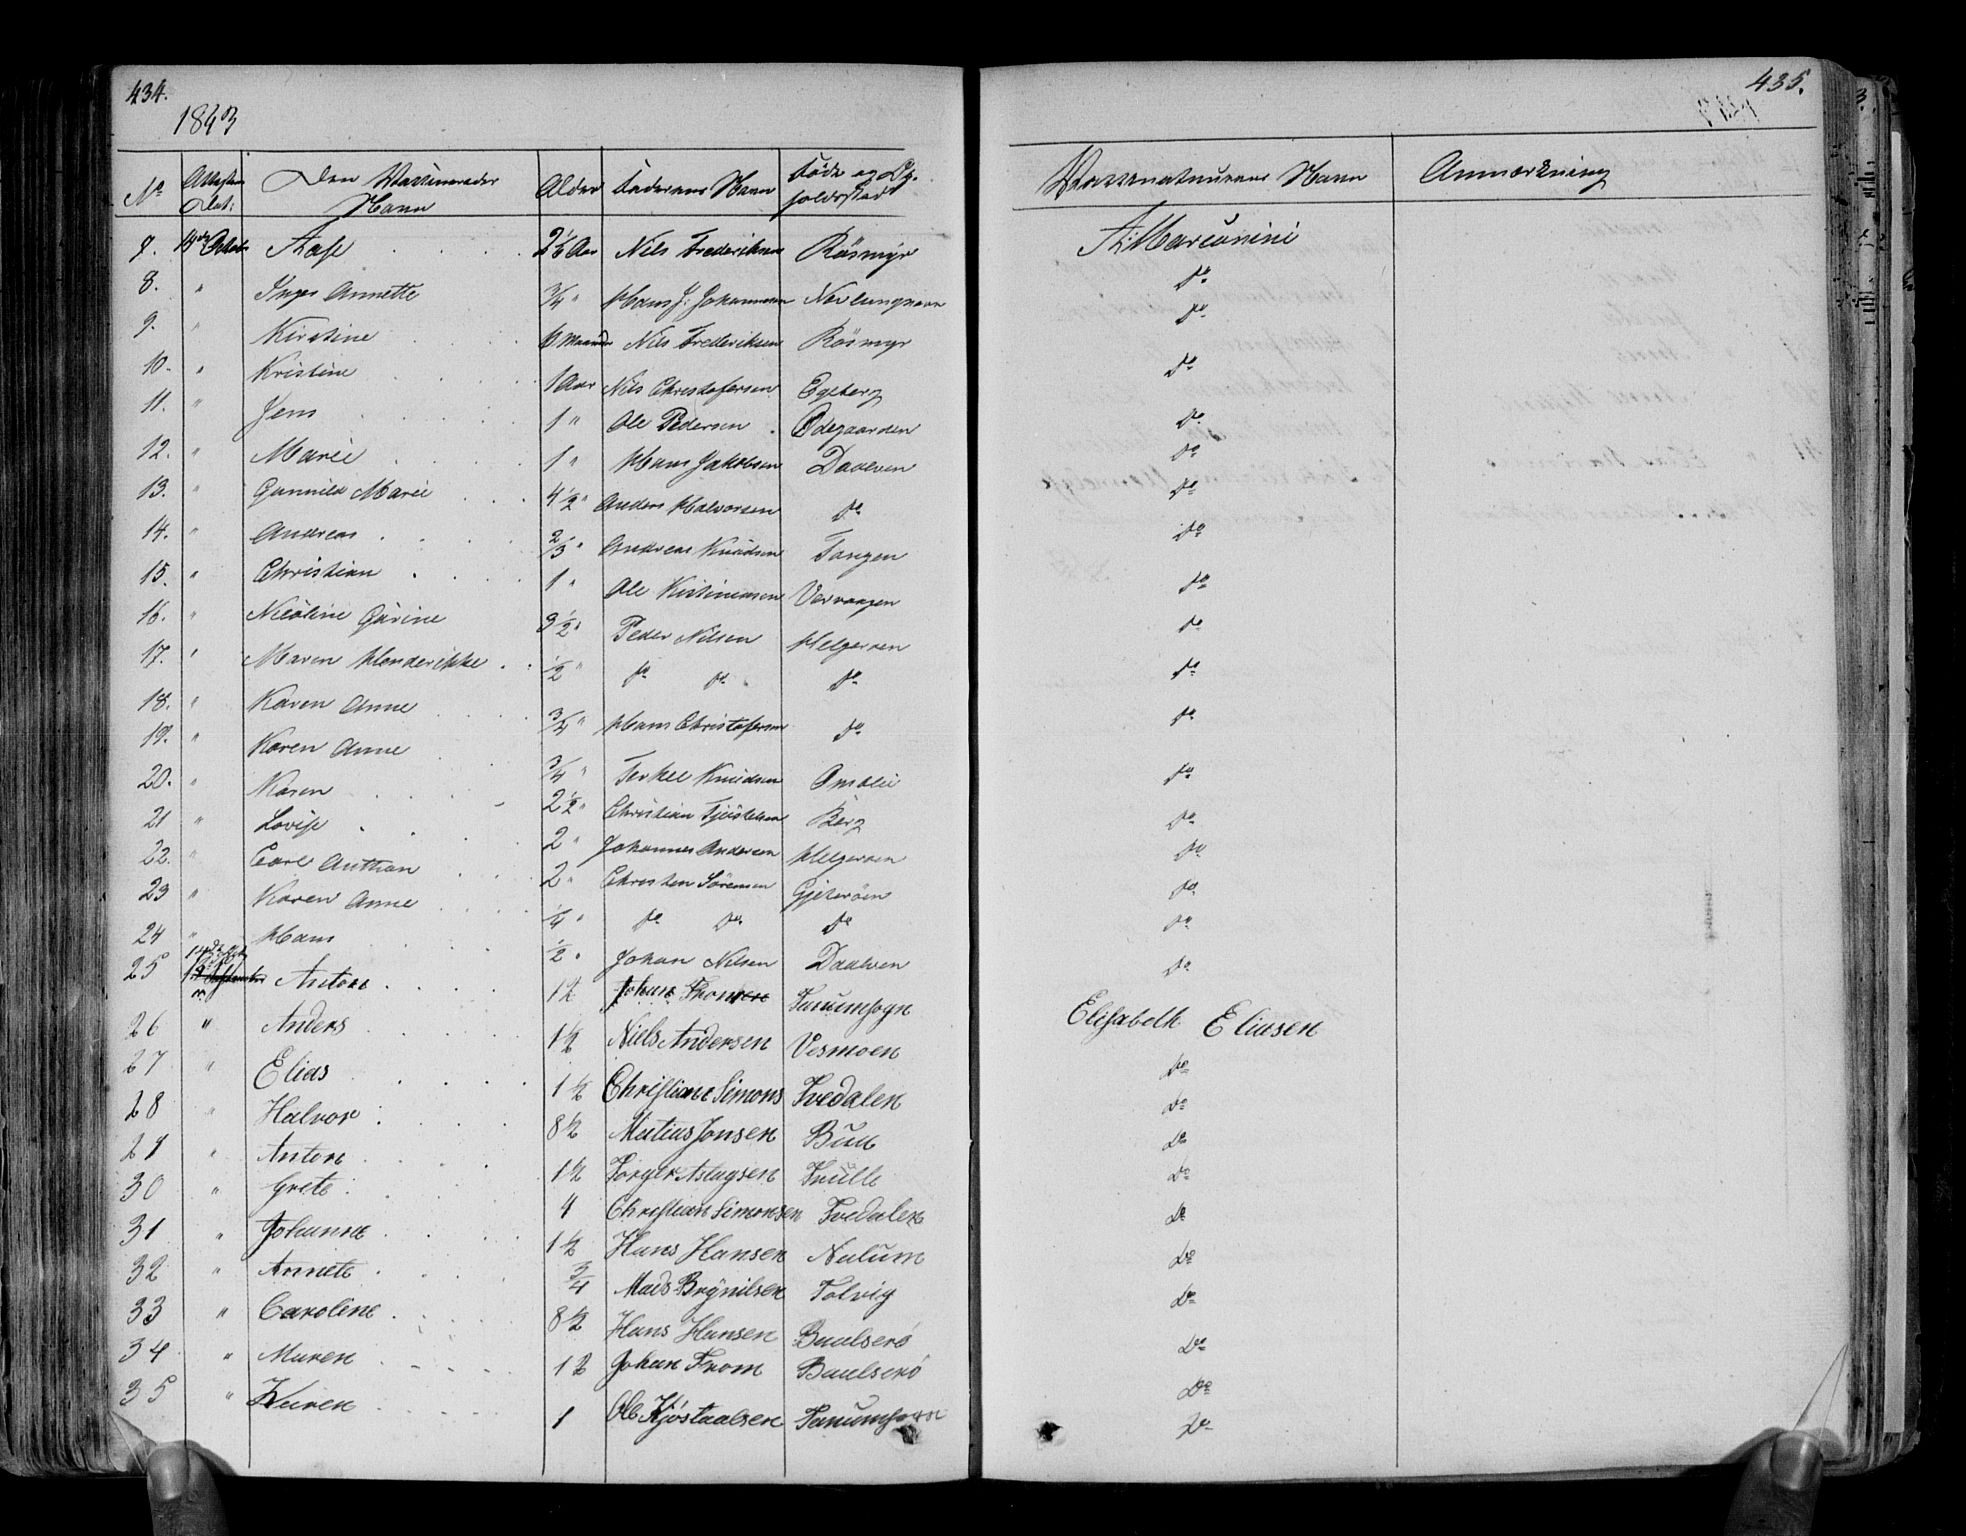 434.
1843
No Attestens Dat: Den Vaccineredes Navn Alder Faderens Navn Føde og Op- holdssted
7. 14de Octobr Aase 2 1/2 Aar Nils Frederiksen Røsmyr
8. " Inger Annette 3/4 " Hans J: Johannesen Nevlunghavn
9. " Kirstine 6 Maaneder Nils Frederiksen Røsmyr
10. " Kristine 1 Aar Nils Christofersen Egeberg
11. " Jens 1 " Ole Pedersen Ødegaarden
12. " Marie 1 " Hans Jakobsen Daalven
13. " Gunnild Marie 4 1/2 " Anders Halvorsen do
14. " Andreas 2/3 " Andreas Knudsen Tangen
15. " Christian 1 " Ole Kistiniensen Vervaagen
16. " Nicoline Gurine 3 1/2 " Peder Nilsen Helgeroen
17. " Maren Henderikke 1/2 " do do do
18. " Karen Anne 3/4 " Hans Christofersen do
19. " Karen Anne 3/4 " Terkel Knudsen Omslie
20. " Karen 2 1/2 " Christian Tjøstelsen Berg
21 " Lovise 2 " Johannes Andersen Helgeroen
22. " Carl Anthon 2 " Christen Sørensen Gjeterøen
23 " Karen Anne 1/4 " do do do
24 " Hans 1/2 " Johan Nilsen Daalven
25 Anton 1 1/2 Johan Thomsen Tanumsogn
26 " Anders 1 1/2 Niels Andersen Vesmoen
27 " Elias 1 1/2 Christian Simons Tvedalen
28 " Halvor 8 1/2 Matias Jonsen Buu
29 " Anton 1 1/2 Torger Aslagsen Snulle
30 " Grete 4 Christian Simonsen Tvedalen
31 " Johanne 1 1/2 Hans Hansen Nalum
32 " Annete 3/4 Mads Brynilsen Tolvig
33 " Caroline 8 1/2 Hans Hansen Baalserø
34 " Maren 1 1/2 Johan From Baalserø
35 " Karen 1 Ole Kjøstaalsen Tanumsogn
435.
Vaccinateurens Navn Anmærkning
A: Marconini
do
do
do
do
do
do
do
do
do
do
do
do
do
do
do
do
do
Elisabeth Eliasen
Do
Do
Do
Do
Do
Do
Do
Do
Do
Do